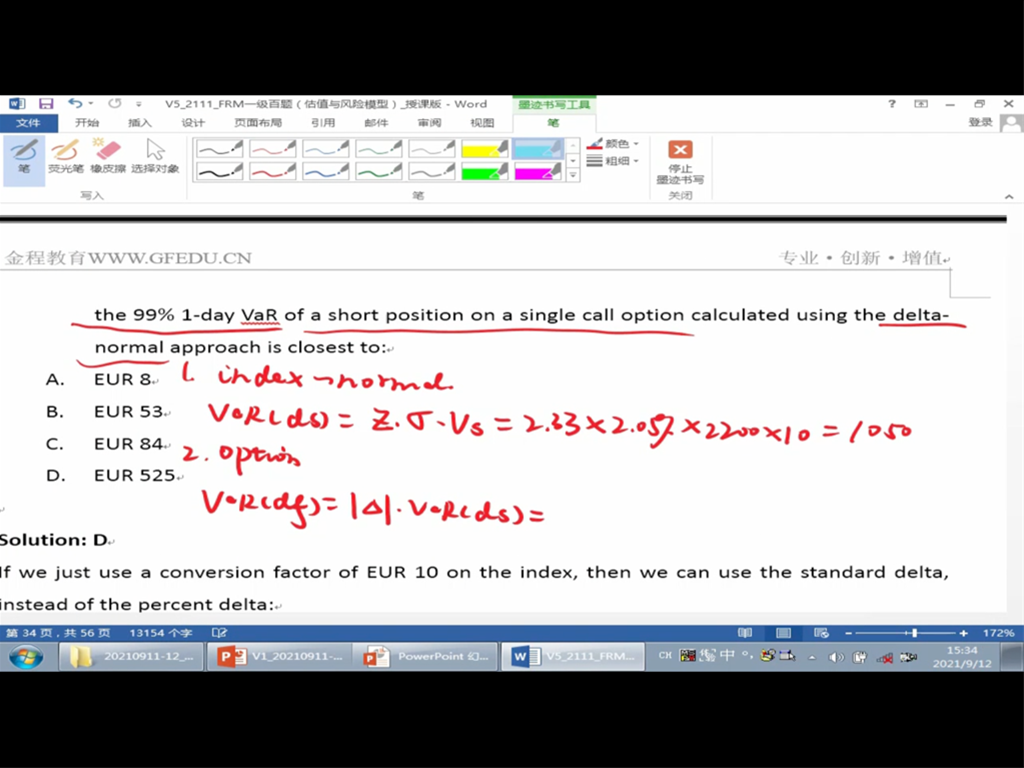 V5_2111_FRM一级百题（估值与风险模型）_授课版 - Word
墨迹书写工具
文件 开始 插入 设计 页面布局 引用 邮件 审阅 视图 笔 登录
笔 荧光笔 橡皮擦 选择对象
颜色
粗细
停止
墨迹书写
写入 笔 关闭
金程教育WWW.GFEDU.CN 专业·创新·增值
the 99% 1-day VaR of a short position on a single call option calculated using the delta-
normal approach is closest to:
A. EUR 8
1. index→normal
B. EUR 53
VaR(ds) = Z·σ·Vs = 2.33×2.05%×2200×10 = 1050
C. EUR 84
2. option
D. EUR 525
VaR(df) = |Δ|·VaR(ds) =
Solution: D
If we just use a conversion factor of EUR 10 on the index, then we can use the standard delta,
instead of the percent delta:
第 34 页，共 56 页 13154 个字 172%
20210911-12_... V1_20210911-... PowerPoint 幻... V5_2111_FRM... CH 中 15:34
2021/9/12